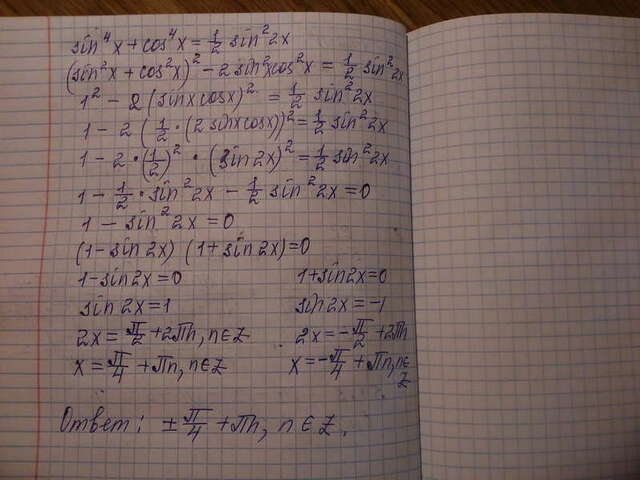 sin⁴x + cos⁴x = 1/2 sin²2x
(sin²x + cos²x)² - 2 sin²x cos²x = 1/2 sin²2x
1² - 2 (sinx cosx)² = 1/2 sin²2x
1 - 2 (1/2 · (2 sinx cosx))² = 1/2 sin²2x
1 - 2 · (1/2)² · (sin2x)² = 1/2 sin²2x
1 - 1/2 · sin²2x - 1/2 sin²2x = 0
1 - sin²2x = 0
(1 - sin2x) (1 + sin2x) = 0
1 - sin2x = 0 1 + sin2x = 0
sin2x = 1 sin2x = -1
2x = π/2 + 2πn, n∈Z 2x = -π/2 + 2πn
x = π/4 + πn, n∈Z x = -π/4 + πn, n∈
Z
Ответ: ± π/4 + πn, n ∈ Z.